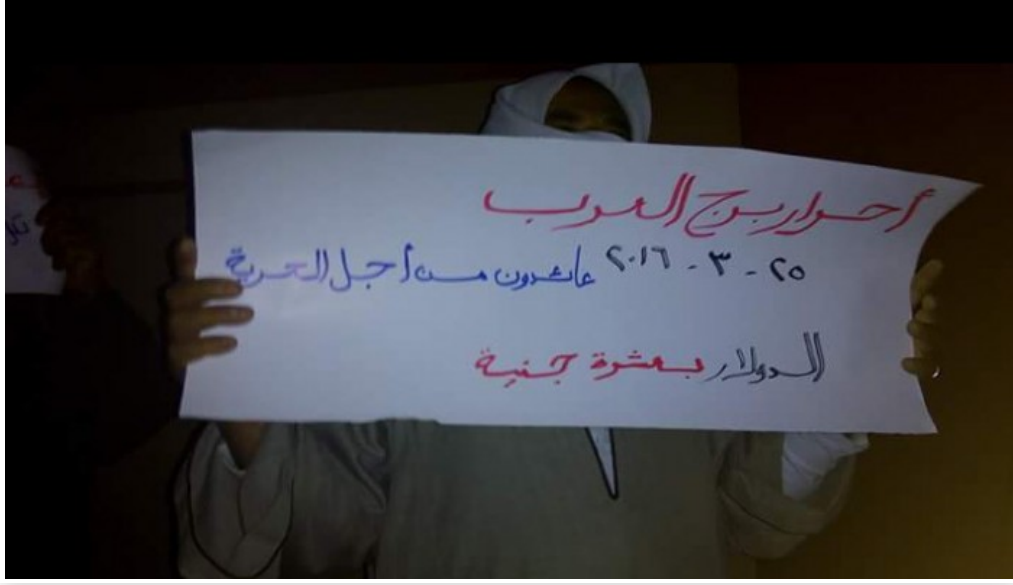 أحرار برج العرب
٢٥ - ٣ - ٢٠١٦ عائدون من أجل الحرية
الدولار بعشرة جنية